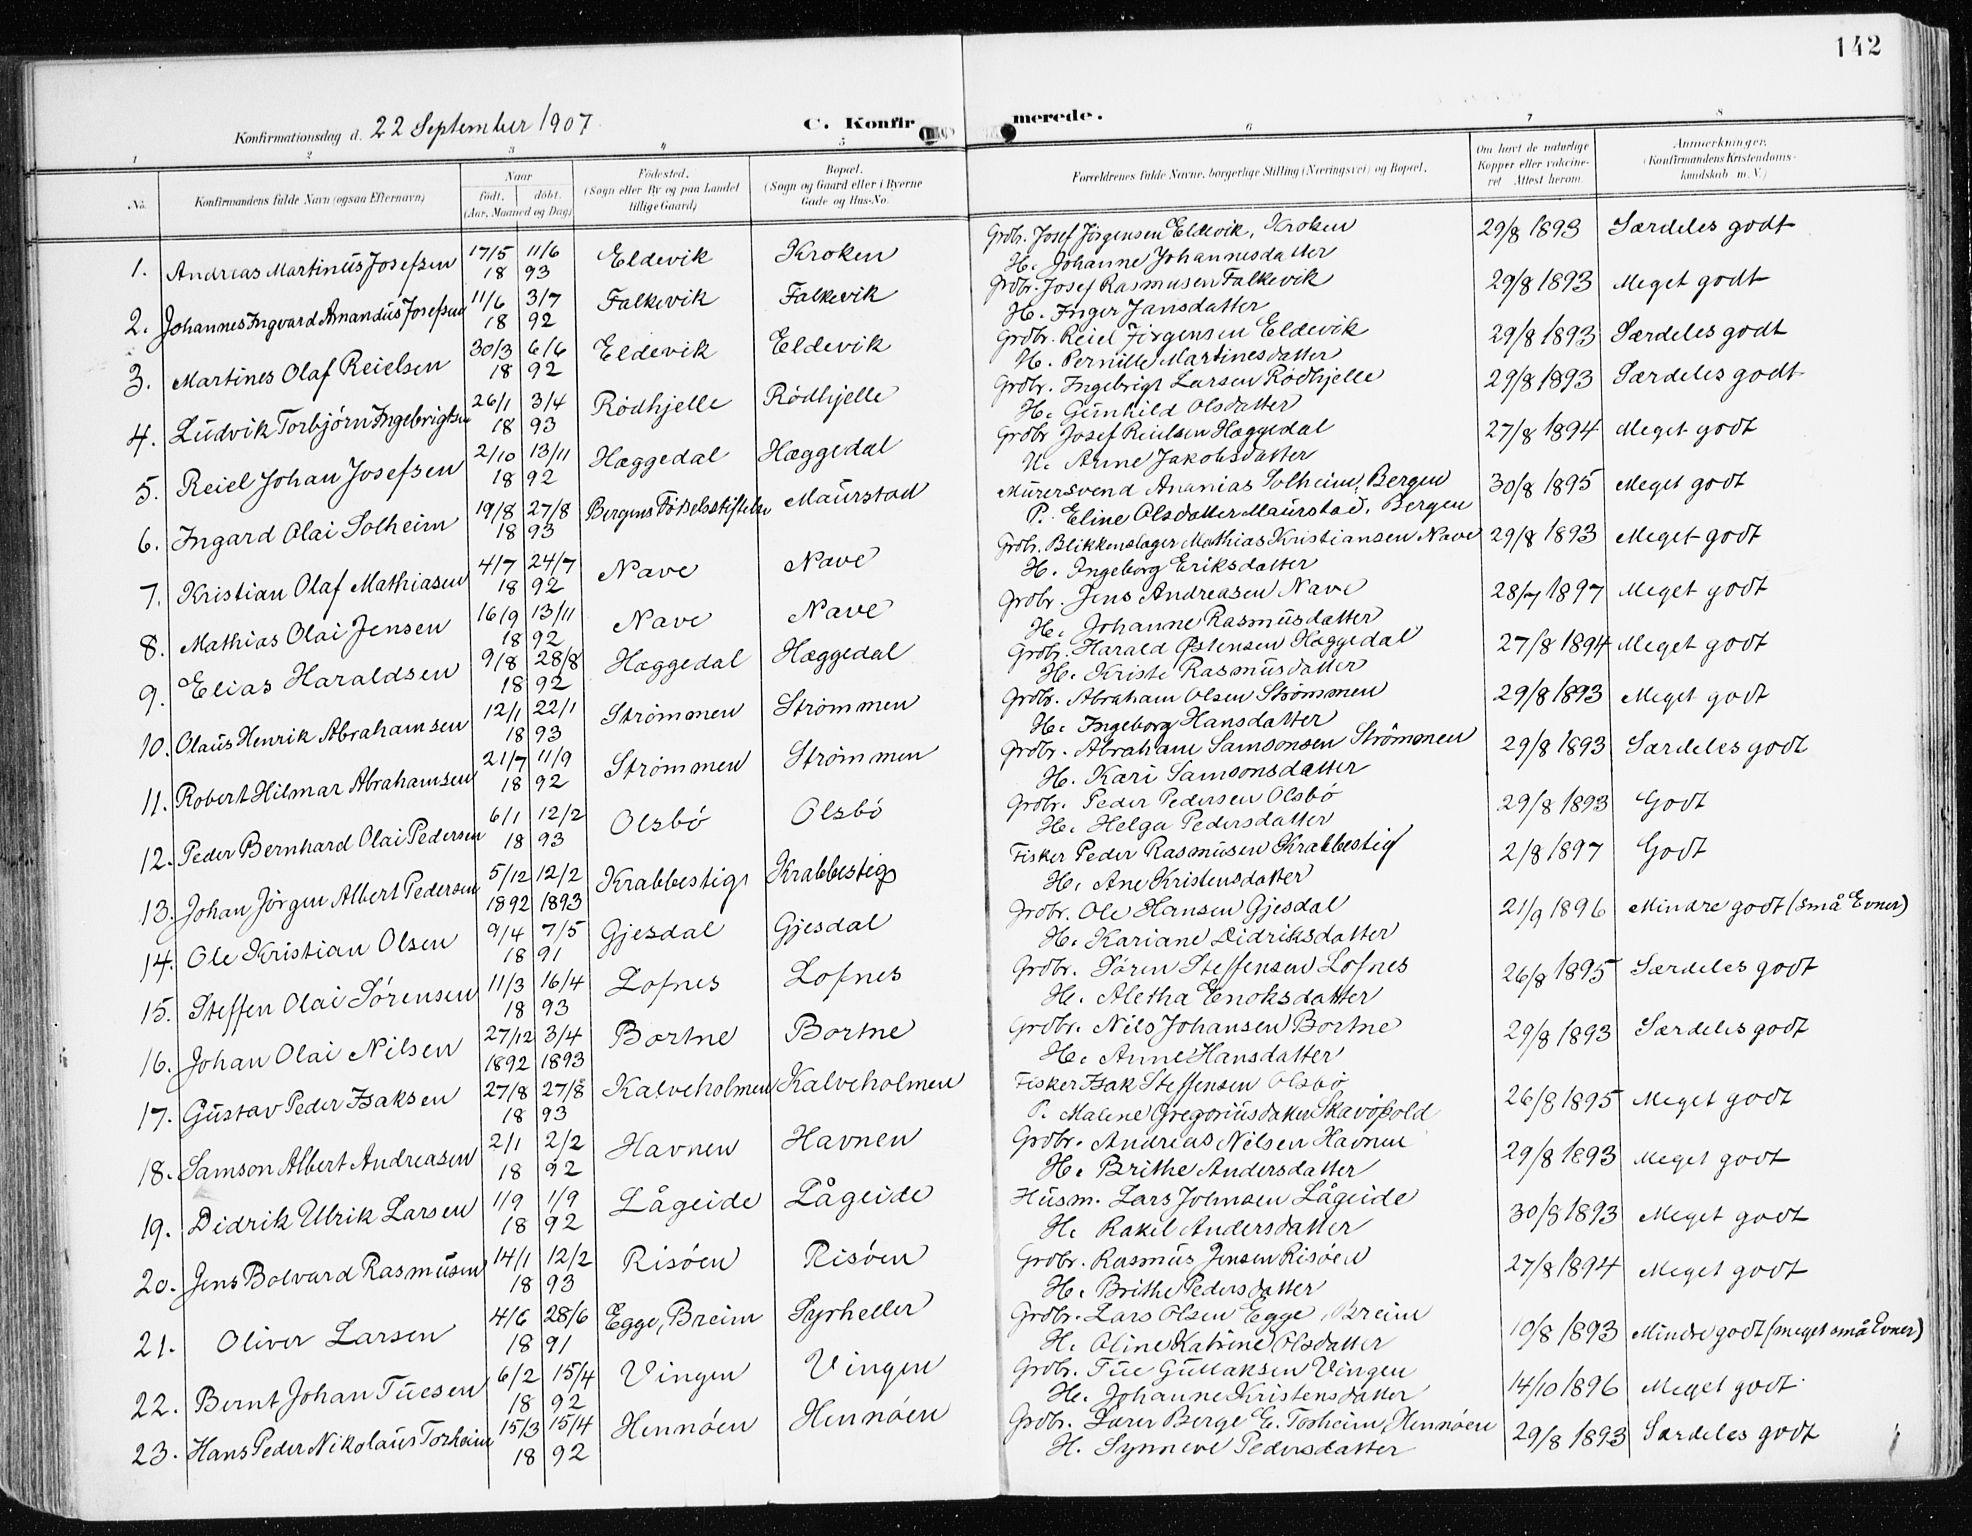 142
Konfirmationsdag d. 22 September 1907.
C. Konfirmerede.
1 2 3 4 5 6 7 8
No. Konfirmandens fulde Navn (ogsaa Efternavn) Naar født. døbt. (Aar, Maaned og Dag) Fødested. (Sogn eller By og paa Landet tillige Gaard) Bopæl. (Sogn og Gaard eller i Byerne Gade og Hus-No. Forældrenes fulde Navne, borgerlige Stilling (Næringsvei) og Bopæl. Om havt de naturlige Kopper eller vakcineret. Attest herom. Anmerkninger. (Konfirmandens Kristendomskundskab m. V.)
1. Andreas Martinus Josefsen 17/5 11/6 Eldevik Kroken Grdbr. Josef Jörgensen Eldevik, Kroken 29/8 1893 Særdeles godt
18 93 H. Johanne Johannesdatter
2. Johannes Ingvard Amandus Josefsen 11/6 3/7 Falkevik Falkevik Grdbr. Josef Rasmusen Falkevik 29/8 1893 Meget godt
18 92 H. Inger Jansdatter
3. Martines Olaf Reielsen 30/3 6/6 Eldevik Eldevik Grdbr. Reiel Jörgensen Eldevik 29/8 1893 Særdeles godt
18 92 H. Pernille Martinesdatter
4. Ludvik Torbjørn Ingebrigtsen 26/1 3/4 Rödhjelle Rödhjelle Grdbr. Ingebrigt Larsen Rödhjelle 29/8 1893 Særdeles godt
18 93 H. Gunhild Olsdatter
5. Reiel Johan Josefsen 2/10 13/11 Hæggedal Hæggedal Grdbr Josef Reielsen Hæggedal 27/8 1894 Meget godt
18 92 H. Anne Jakobsdatter
6. Ingard Olai Solheim 19/8 27/8 Bergens Födselsstiftelse Maurstad Murersvend Ananias Solheim, Bergen 30/8 1895 Meget godt
18 93 P. Eline Olsdatter Maurstad, Bergen
7. Kristian Olaf Mathiasen 4/7 24/7 Nave Nave Grdb. Blikkenslager Mathias Kristiansen Nave 29/8 1893 Meget godt
18 92 H. Ingeborg Eriksdatter
8. Mathias Olai Jensen 16/9 13/11 Nave Nave Grdbr. Jens Andreasen Nave 28/7 1897 Meget godt
18 92 H. Johanne Rasmusdatter
9. Elias Haraldsen 9/8 28/8 Hæggedal Hæggedal Grdbr. Harald Østensen Hæggedal 27/8 1894 Meget godt
18 92 H. Kristi Rasmusdatter
10. Olaus Henrik Abrahamsen 12/1 22/1 Strömmen Strömmen Grdbr. Abraham Olsen Strömmen 29/8 1893 Meget godt
18 93 H. Ingeborg Hansdatter
11. Robert Hilmar Abrahamsen 21/7 11/9 Strömmen Strömmen Grdbr. Abraham Samsonsen Strömmen 29/8 1893 Særdeles godt
18 92 H. Kari Samsonsdatter
12. Peder Bernhard Olai Pedersen 6/1 12/2 Olsbö Olsbö Grdbr. Peder Pedersen Olsbö 29/8 1893 Godt
18 93 H. Helga Pedersdatter
13. Johan Jörgen Albert Pedersen 5/12 12/2 Krabbestig Krabbestig Fisker Peder Rasmusen Krabbestig 2/8 1897 Godt
1892 1893 H. Ane Kristensdatter
14. Ole Kristian Olsen 9/4 7/5 Gjesdal Gjesdal Grdbr. Ole Hansen Gjesdal 21/9 1896 Mindre godt (små Evner)
18 91 H. Kariane Didriksdatter
15. Steffen Olai Sörensen 11/3 16/4 Lofnes Lofnes Grdbr. Sören Steffensen Lofnes 26/8 1895 Særdeles godt
18 93 H. Aletha Enoksdatter
16. Johan Olai Nilsen 27/12 3/4 Bortne Bortne Grdbr. Nils Johansen Bortne 29/8 1893 Særdeles godt
1892 1893 H. Anne Hansdatter
17. Gustav Peder Isaksen 27/8 27/8 Kalveholmen Kalveholmen Fisker Isak Steffensen Olsbö 26/8 1895 Meget godt
18 93 P. Malene Gregoriusdatter
18. Samson Albert Andreasen 2/1 2/2 Havnen Havnen Grdbr. Andreas Nilsen Havnen 29/8 1893 Meget godt
18 92 H. Brithe Andersdatter
19. Didrik Ulrik Larsen 1/9 1/9 Lågeide Lågeide Husm. Lars Johnsen Lågeide 30/8 1893 Meget godt
18 92 H. Rakel Andersdatter
20. Jens Bolvard Rasmusen 14/1 12/2 Risöen Risöen Grdbr. Rasmus Jensen Risöen 27/8 1894 Meget godt
18 93 H. Brithe Pedersdatter
21. Oliver Larsen 4/6 28/6 Egge, Breim Syrheller Grdbr. Lars Olsen Egge, Breim 10/8 1893 Mindre godt (meget små Evner)
18 91 H. Oline Katrine Olsdatter
22. Bernt Johan Tuesen 6/2 15/4 Vingen Vingen Grdbr. Tue Gullaksen Vingen 14/10 1896 Meget godt
18 92 H. Johanne Kristensdatter
23. Hans Peder Nikolaus Torheim 15/3 15/4 Hennöen Hennöen Grdb. Lærer Berge E. Torheim, Hennöen 29/8 1893 Særdeles godt
18 92 H. Synneve Pedersdatter